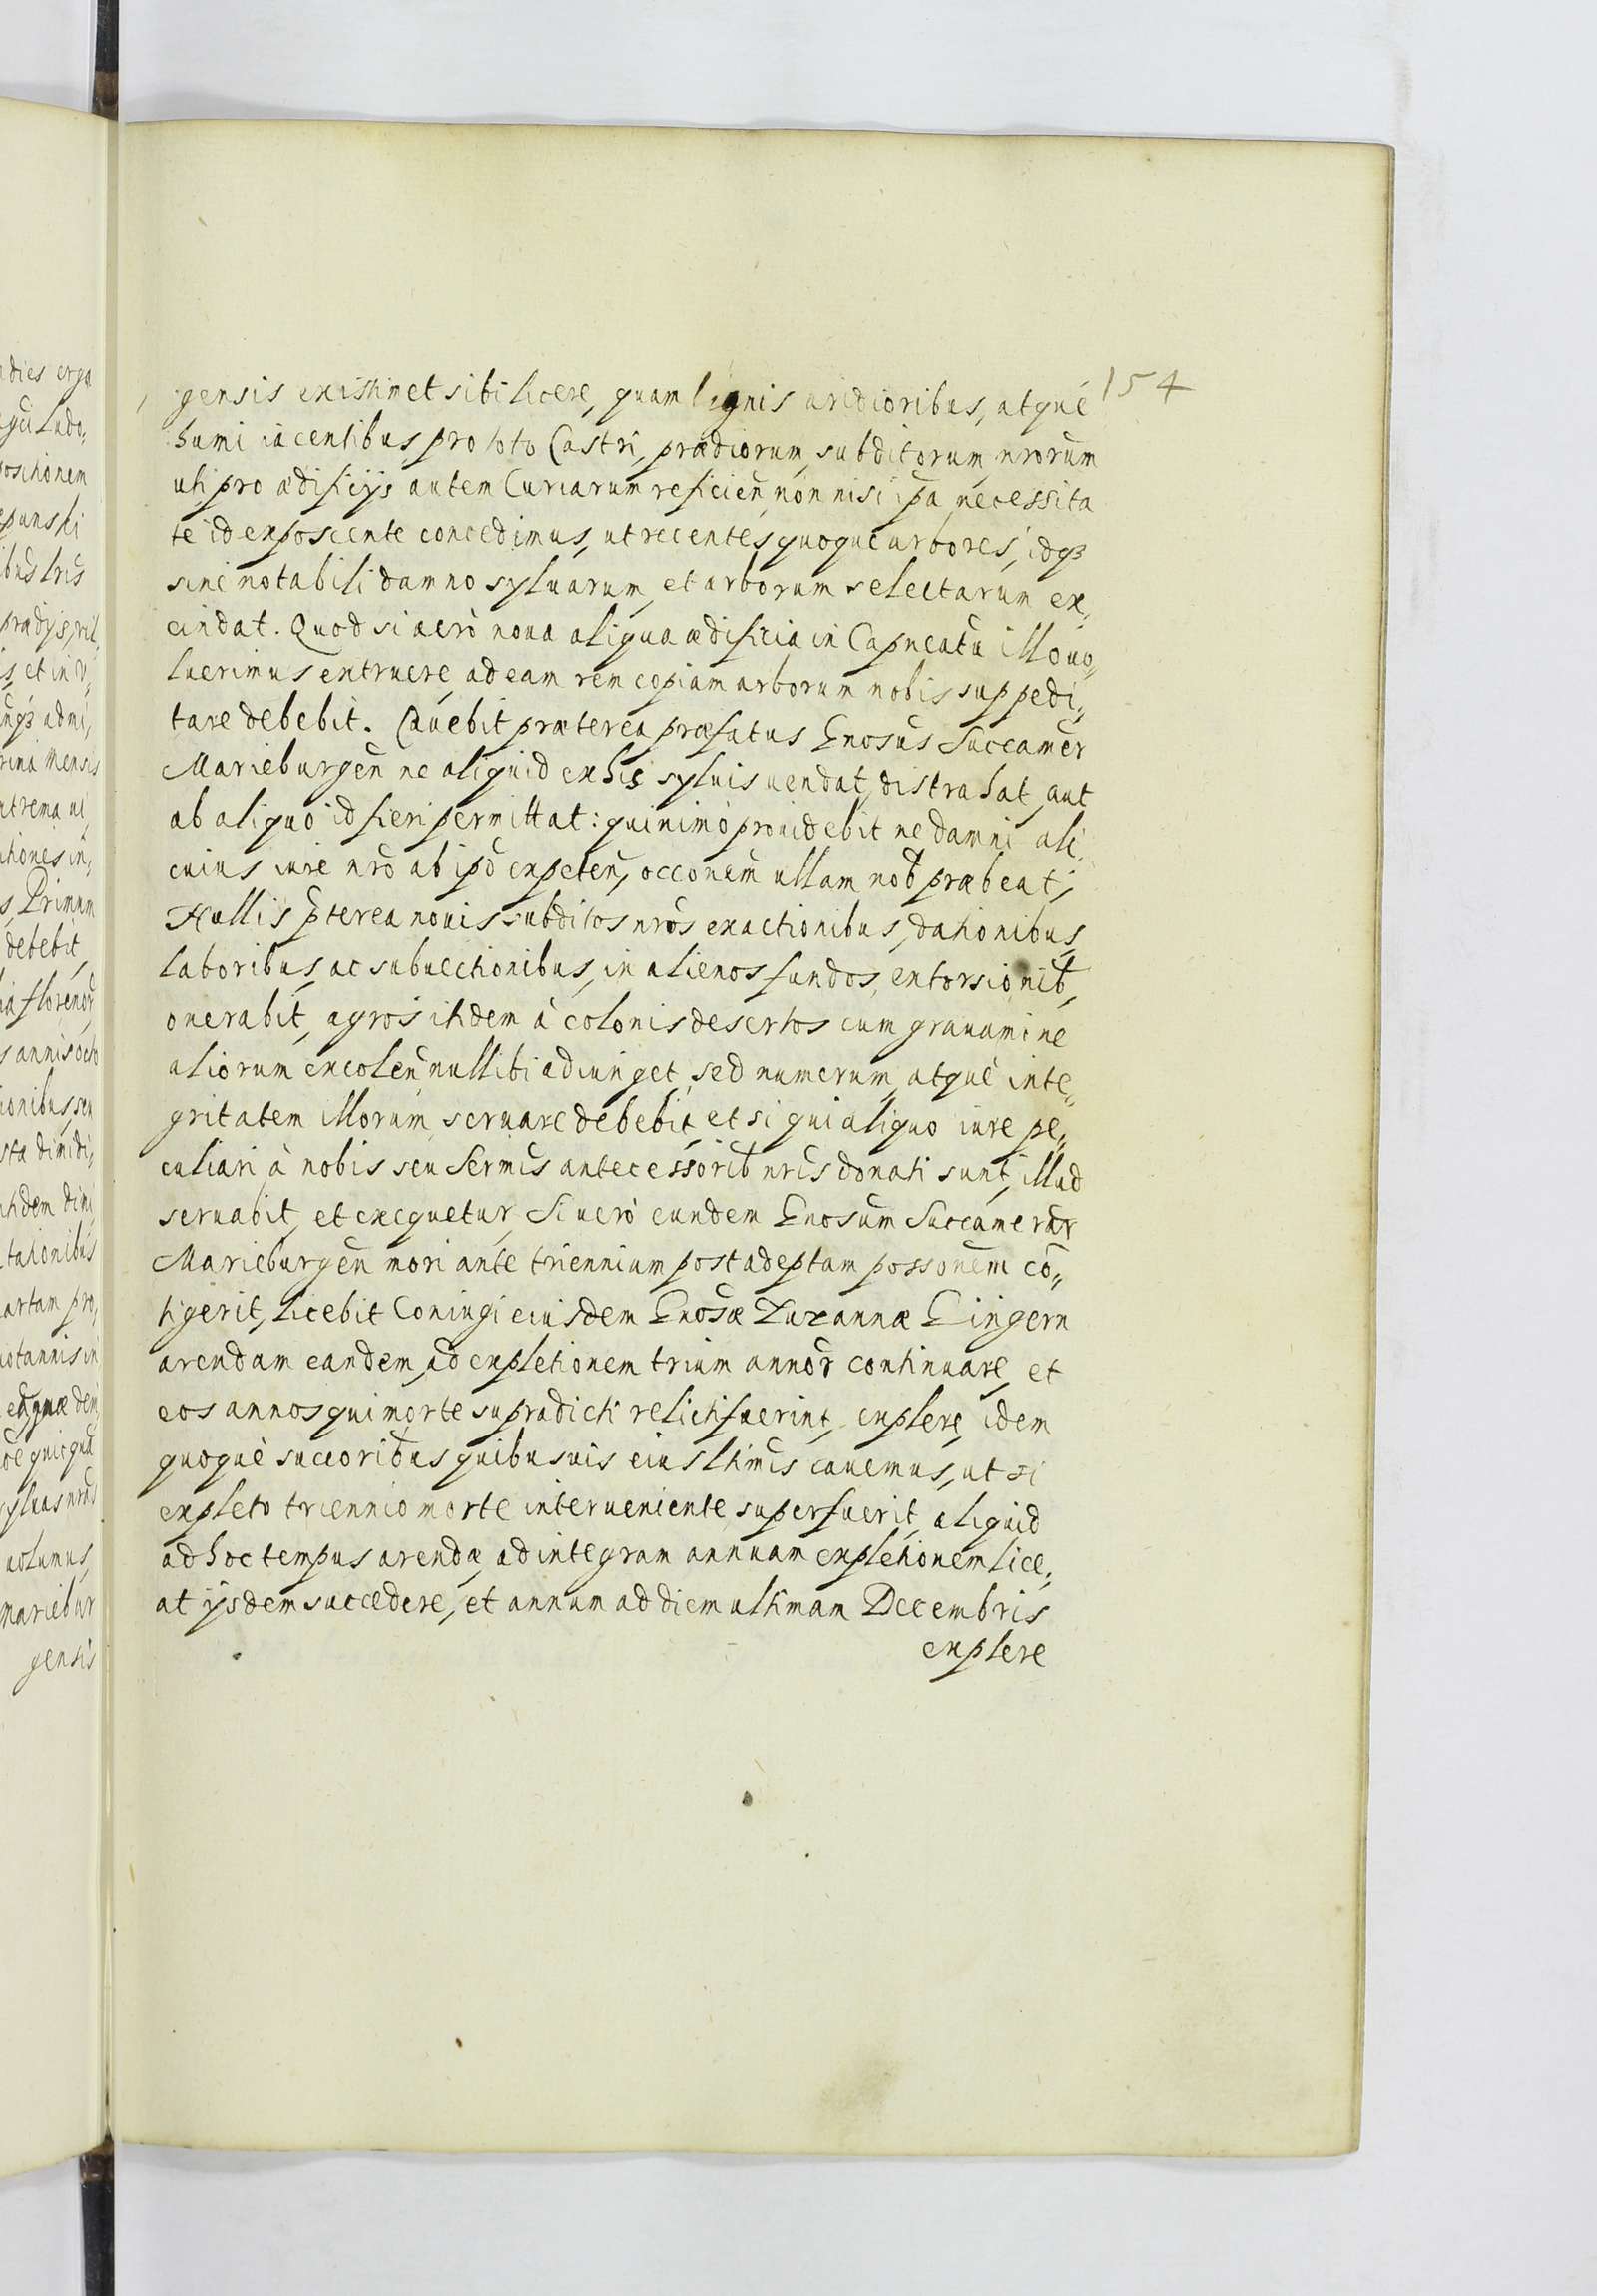 154
gensis existimet sibi licere, quam lignis aridioribus, atquè
humi iacentibus pro toto Castri, prædiorum, subditorum nrorum
uti pro ædificijs autem Curiarum reficien̄ non nisi ip̄a necessita
te id exposcente concedimus, ut recentes quoque arbores, idqꝫ
sine notabili damno syluarum, et arborum selectarum ex,
cindat. Quod si aerò noua aliqua ædificia in Capneatū illo uo„
luerimus extruere, ad eam rem copiam arborum nobis suppedi„
tare debebit. Cauebit præterea præfatus Gnosūs Succamēr
Marieburgēn ne aliquid ex his syluis uendat, distrahat, aut
ab aliquo id fieri permittat: quinimò prouidebit ne damni ali„
cuius iure nrō ab ipō expeten̄, occonem̄ ullam nob̄ præbeat;
Nullis p̄terea nouis subditos nrōs exactionibus, dationibus,
laboribus, ac subuectionibus, in alienos fundos, extorsionib̄,
onerabit, agros itidem à colonis desertos cum grauamine
aliorum excolen̄ nullibi adiunget, sed numerum, atquè inte„
gritatem illorum, seruare debebit, et si qui aliquo iure pe„
culiari à nobis seu Sermīs antecessorib̄ nrīs donati sunt, illud
seruabit, et exequetur, Si uerò eundem Gnosūm Succamerār
Marieburgēn mori ante triennium post adeptam possonēm cō„
tigerit, licebit Coniugi eiusdem Gnosæ Zuzannæ Eingern
arendam eandem, ad expletionem trium annōr continuare, et
eos annos qui morte supradicti relicti fuerint, explere, idem
quoquè succoribūs quibusuis eius lt̄imīs cauemus, ut si
expleto triennio morte interueniente, superfuerit, aliquid
ad hoc tempus arendæ, ad integram annuam expletionem lice„
at ijsdem succedere, et annum ad diem ultimam Decembris
explere